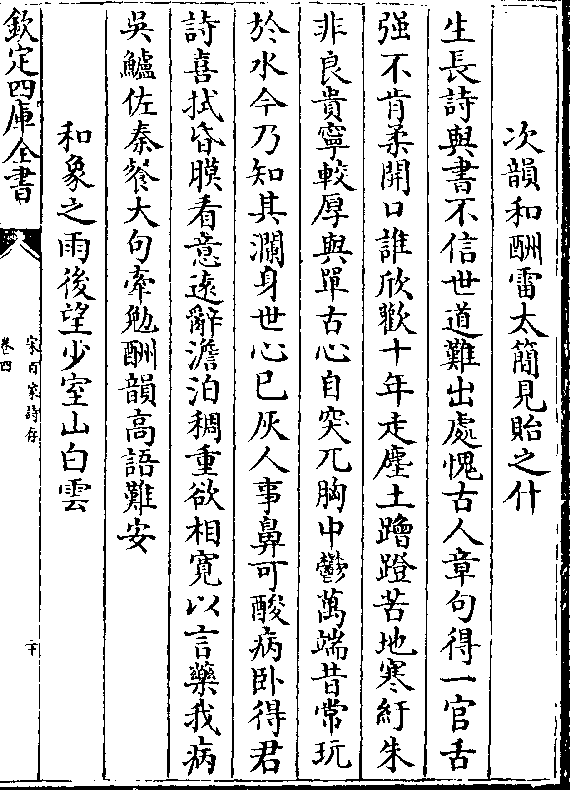 次韻和酬雷太簡見貽之什
生長詩與書不信世道難出處愧古人章句得一官舌
强不肯柔開口誰欣歡十年走塵土蹭蹬苦地寒紆朱
非良貴寧較厚與單古心自突兀胸中鬱萬端昔常玩
於水今乃知其瀾身世心已灰人事鼻可酸病卧得君
詩喜拭昏膜看意遠辭澹泊稠重欲相寛以言藥我病
吳鱸佐秦餐大句牽勉酬韻高語難安
和象之雨後望少室山白雲
欽定四庫全書
宋百家詩存
卷四
二十